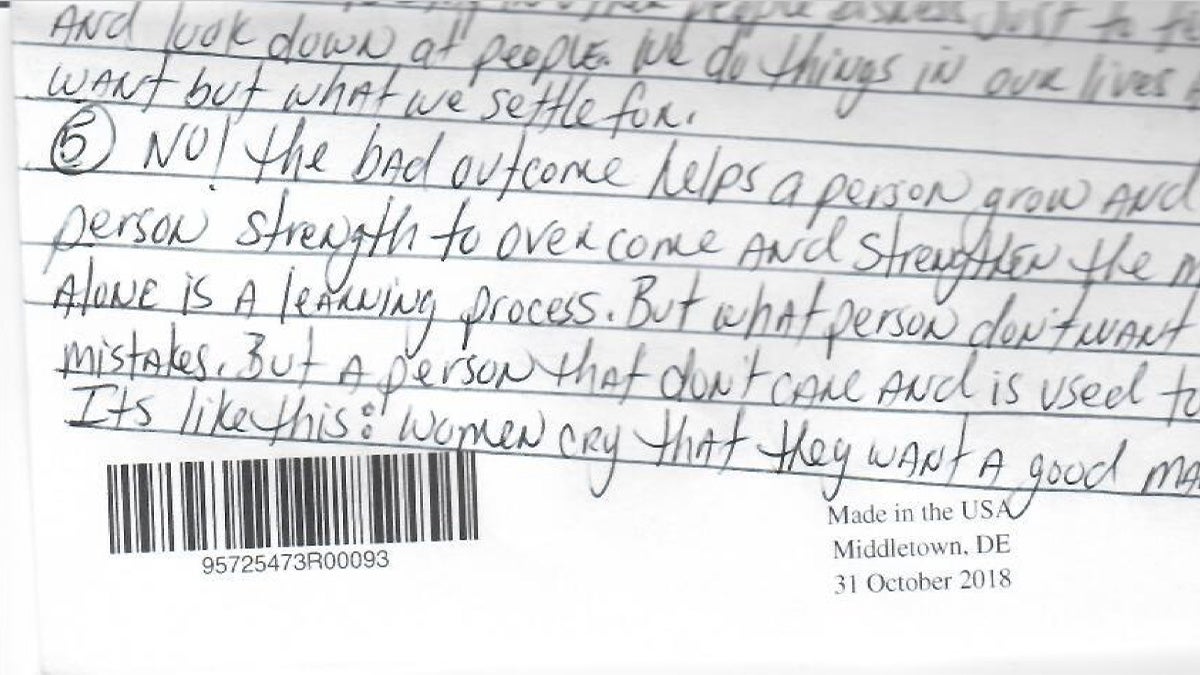 people just to
And look down at people. We do things in our lives
want but what we settle for.
5 NO! the bad outcome helps a person grow And
person strength to overcome And Strengthen the
Alone is A learning process. But what person don't want
mistakes. But A person that don't care And is used to
Its like this: Women cry that they want A good ma
95725473R00093
Made in the USA
Middletown, DE
31 October 2018